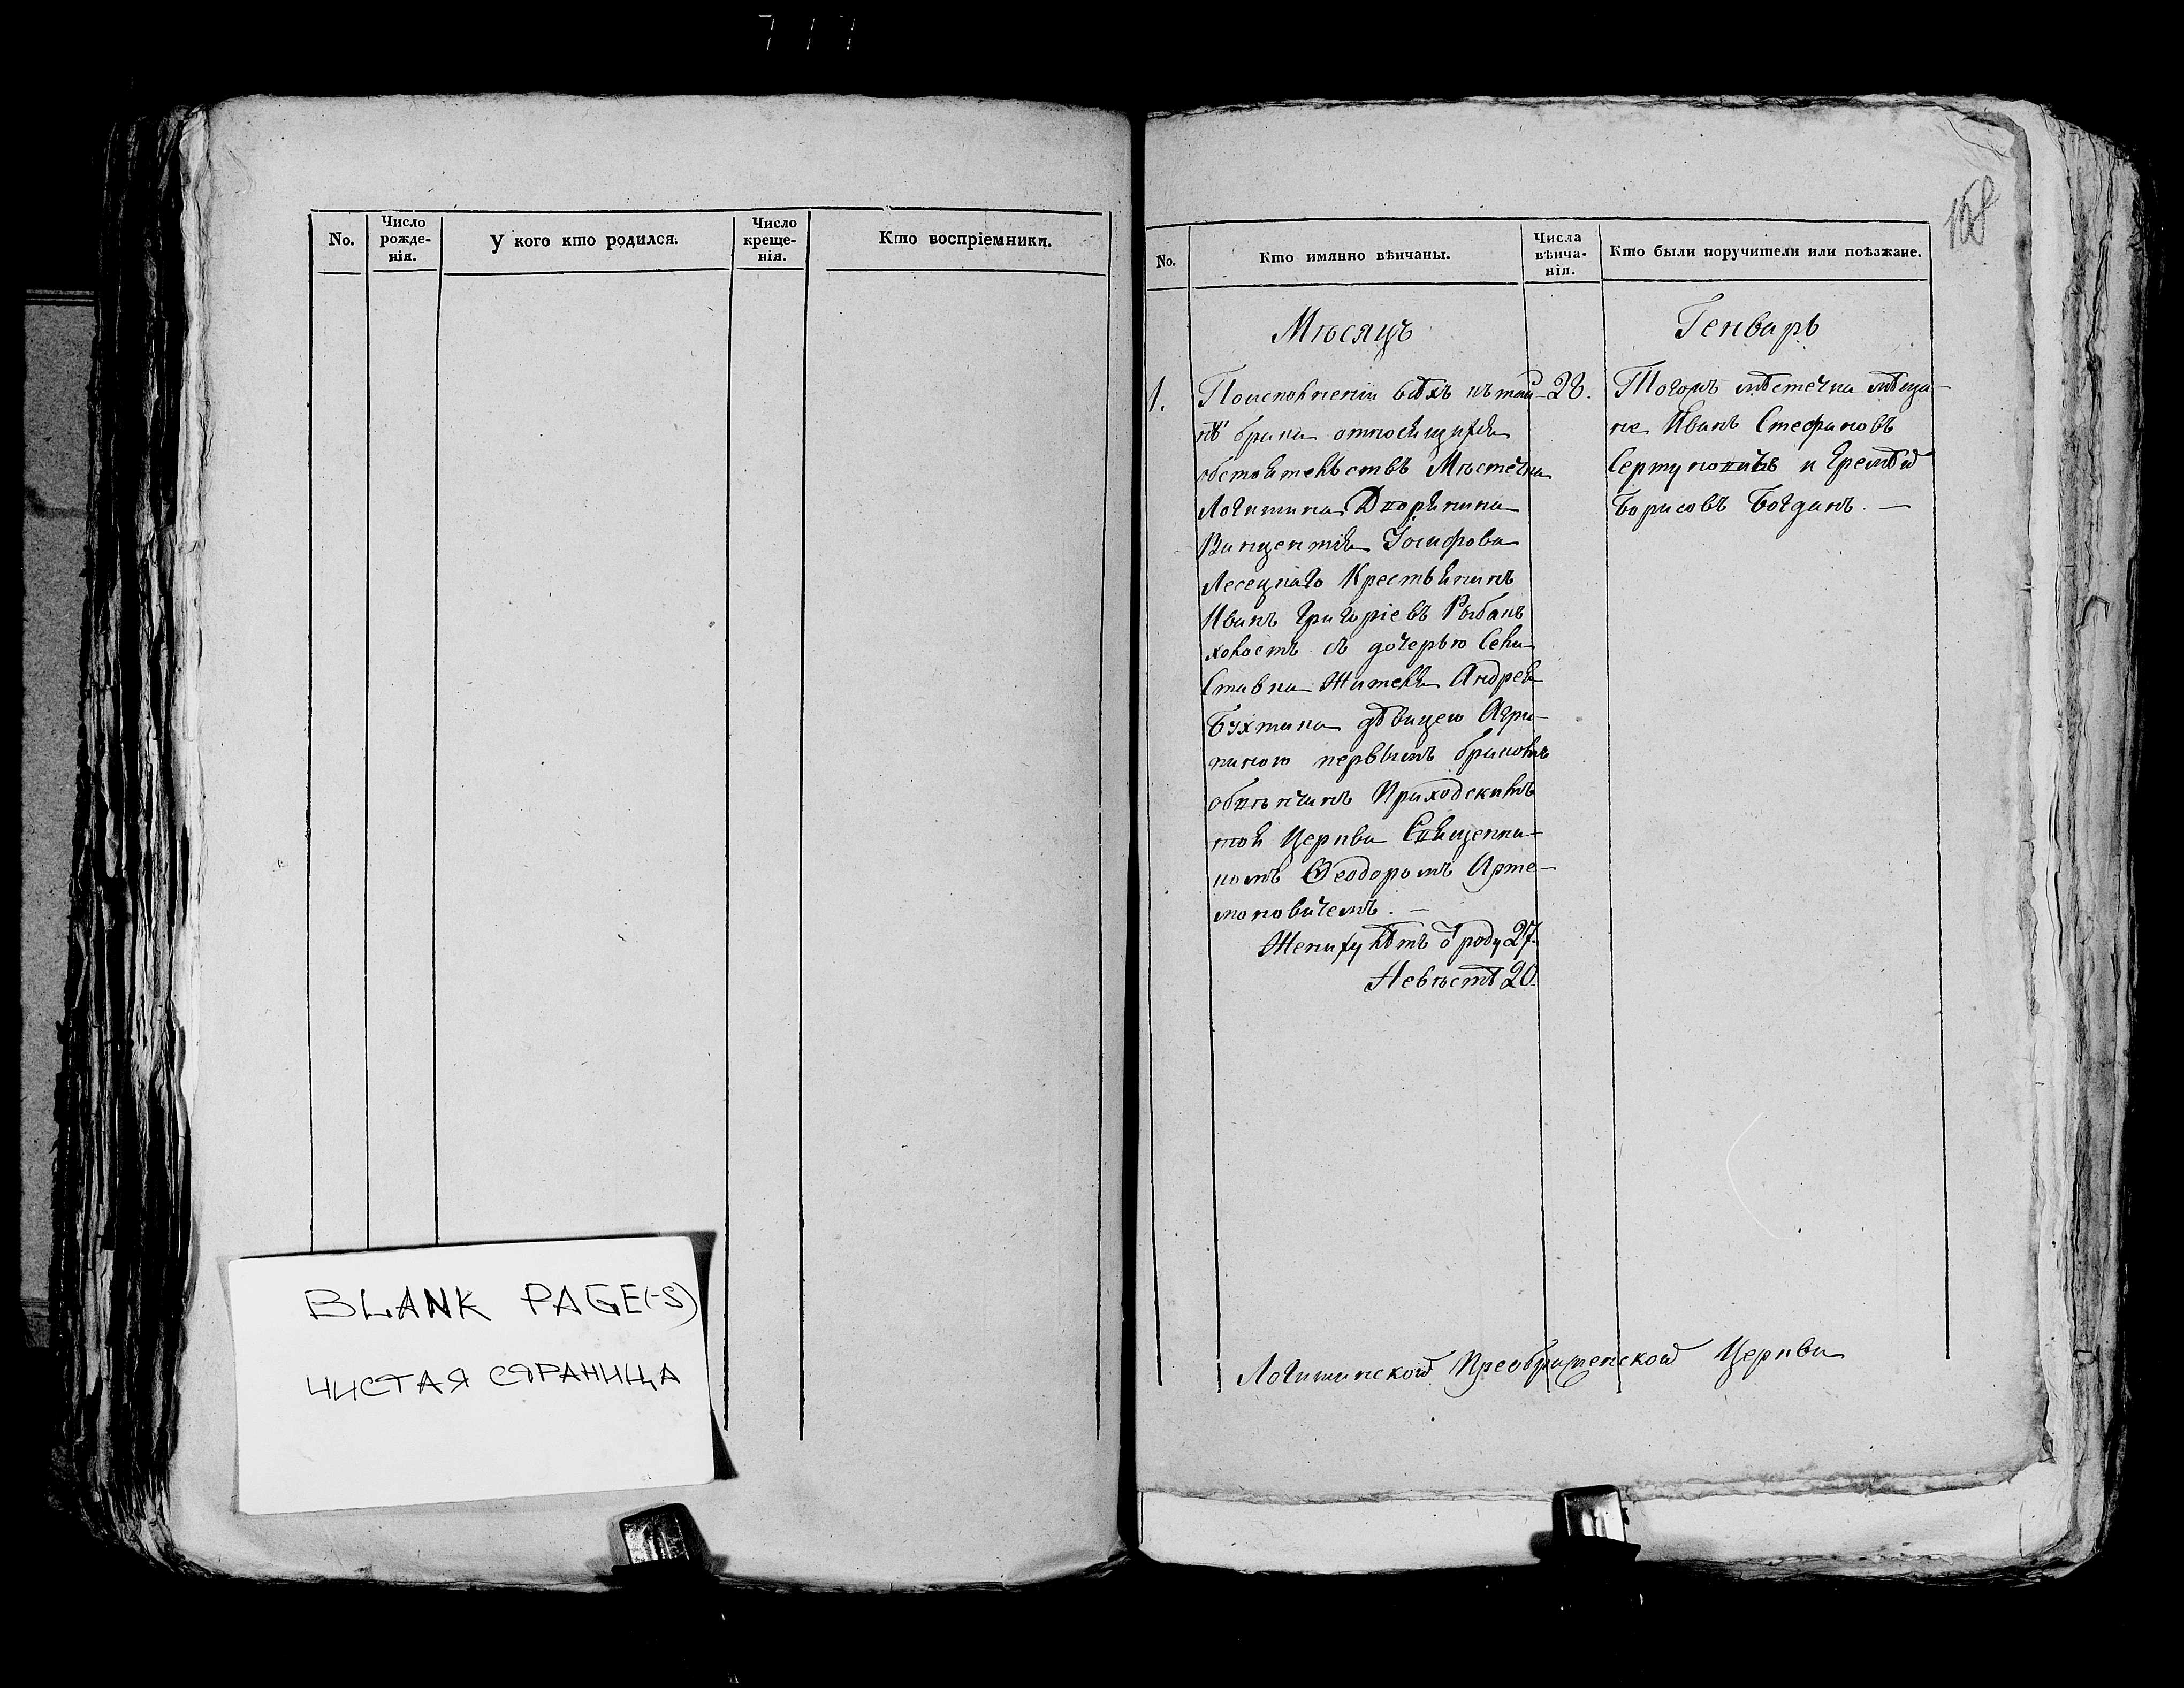 717
No.
Число рожде-нія.
У кого кто родился.
Число креще-нія.
Кто воспріемники.
BLANK PAGE(-S)
ЧИСТАЯ СТРАНИЦА
168
No.
Кто имянно вѣнчаны.
Числа вѣнча-нія.
Кто были поручители или поѣзжане.
Мѣсяцъ
Генварь
1.
По исполненіи всѣхъ къ тай-
нѣ брака относящихся
обстоятельствъ Мѣстечка
Логишина Дворянина
Винцентія Іосифова
Лесецкаго Крестьянинъ
Иванъ Григоріевъ Рыбак
хвостъ съ дочерью Села
Ставка Жителя Андрея
Бухтика дѣвицею Агри-
пиною первымъ бракомъ
обвѣнчанъ Приходскимъ
той Церкви Священни-
комъ Ѳеодоромъ Арте-
моновичемъ. —
Жениху лѣтъ ѿ роду 27.
Невѣстѣ 20.
28.
Тогожъ мѣстечка мѣща-
не Иванъ Стефановъ
и Еремѣй
Борисовъ Богданъ. —
Логишинской Преображенской Церкви